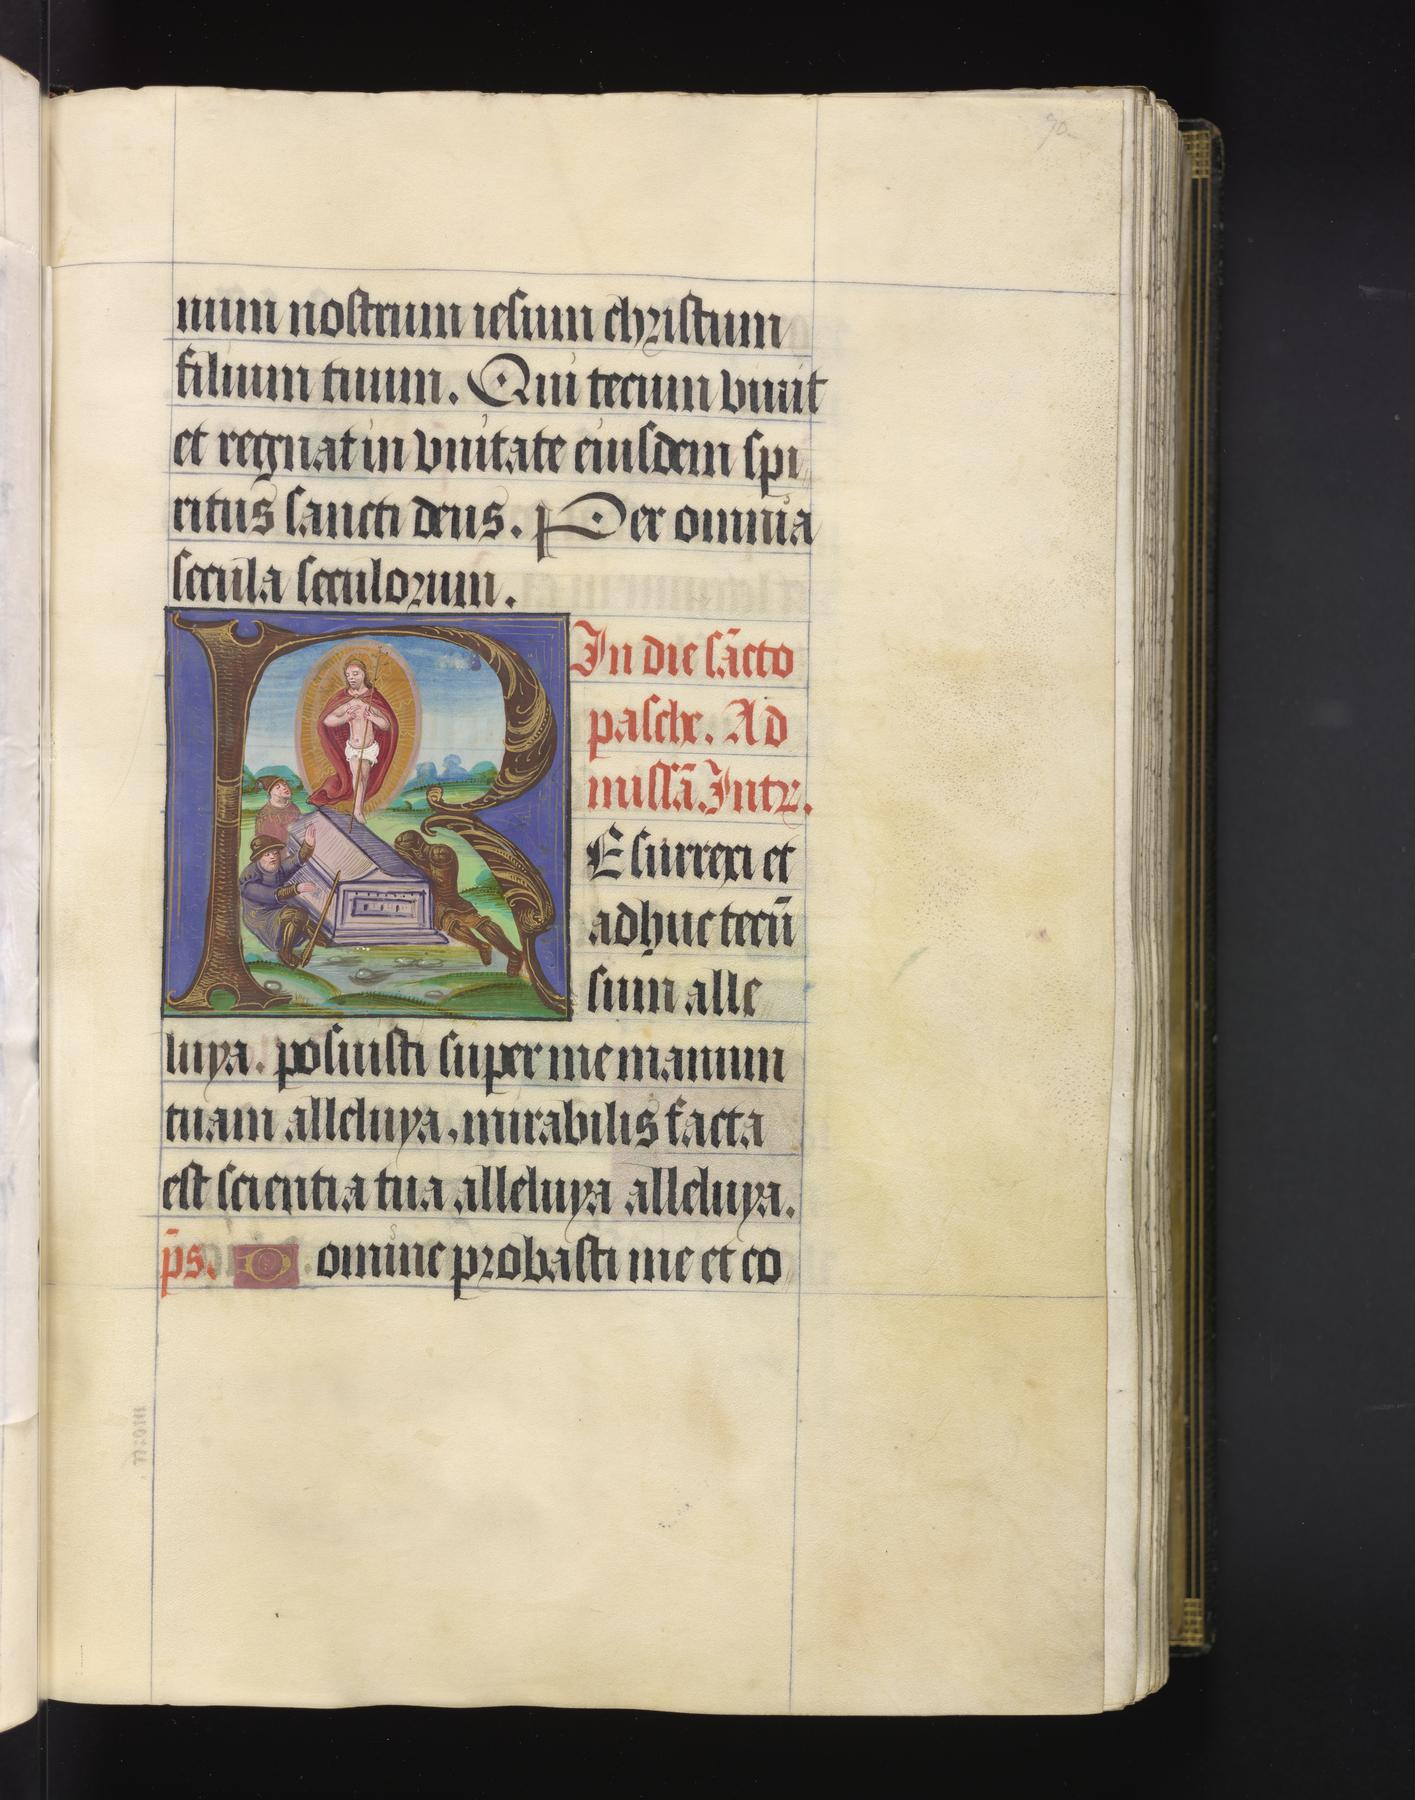 90
num nostrum iesum christum
filium tuum. Qui tecum viuit
et regnat in vnitate eiusdem spi
ritus sancti deus. Per omnia
secula seculorum.
In die sācto
pasche. Ad
missā. Intr.
R Esurrexi et
adhuc tecū
sum alle
luya. posuisti super me manum
tuam alleluya. mirabilis facta
est scientia tua alleluya alleluya.
p̄s. D omine probasti me et co